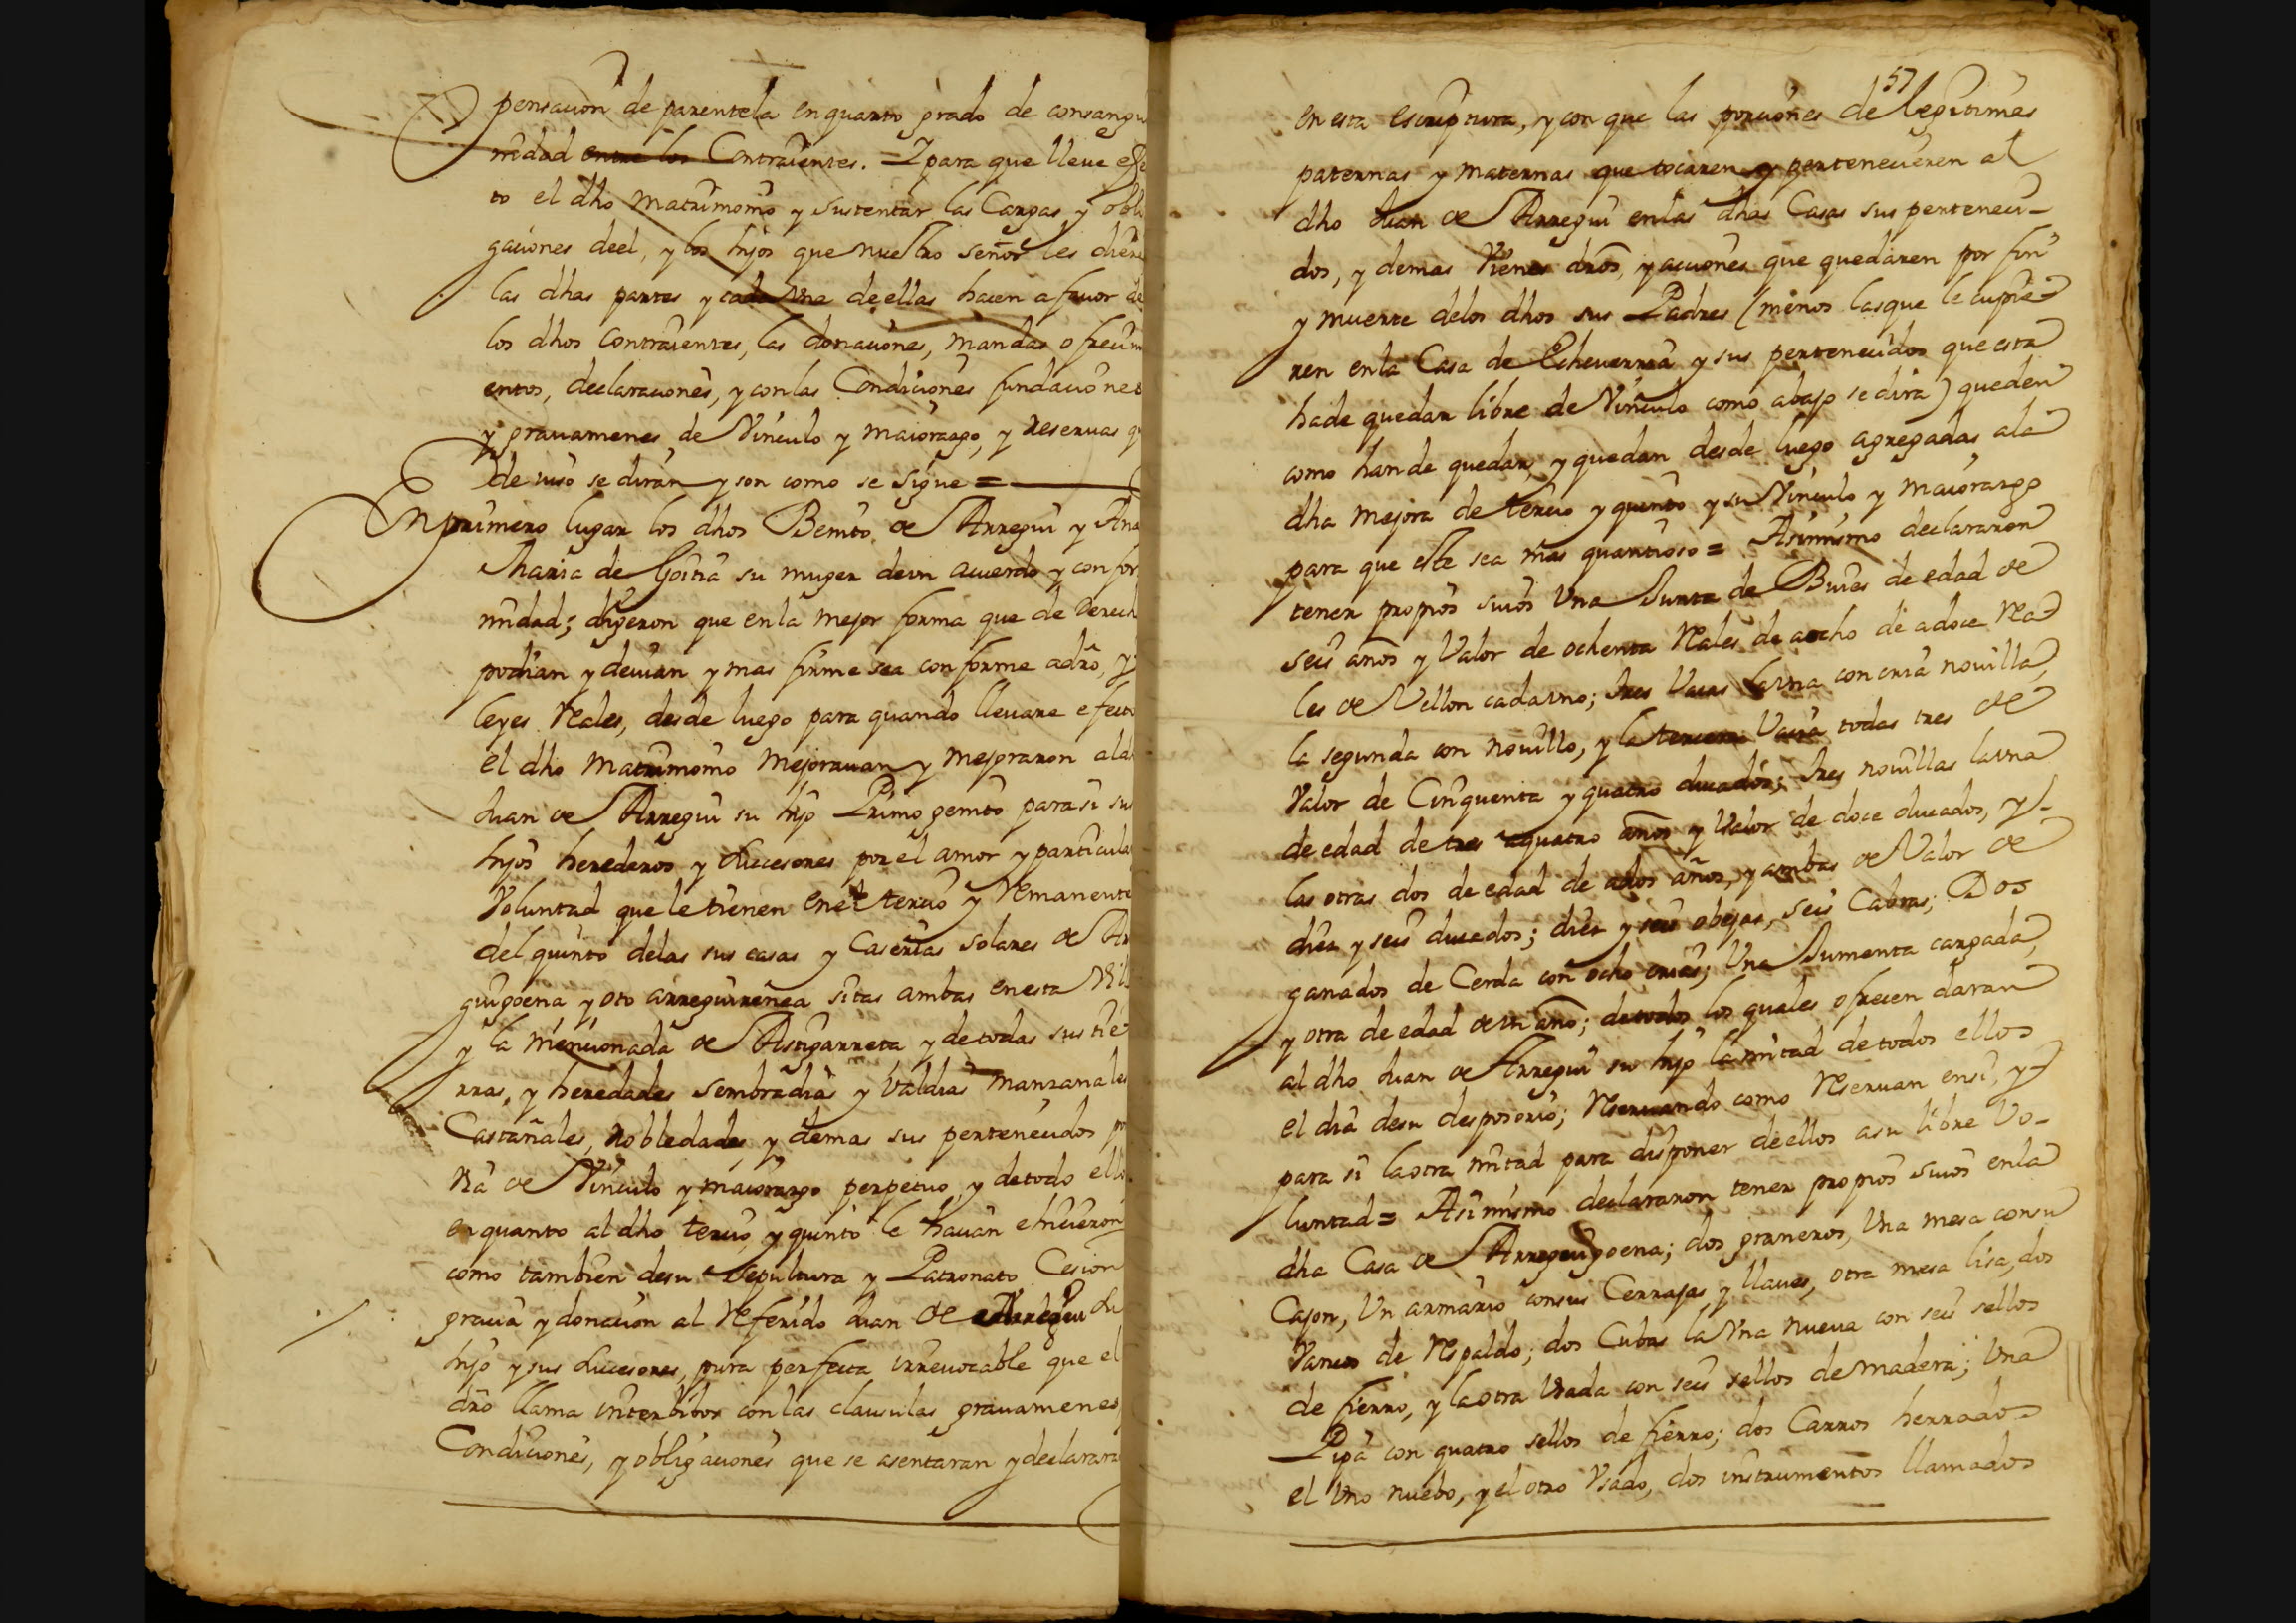 pensacion de parentela en quarto grado de consangu
nidad entre los Contraientes. = Y para que lleve efe
to el dho matrimonio y sustentar las Cargas y obli
gaciones deel, y los hijos que nuestro señor les diere
las dhas partes y cada Una de ellas hacen a favor de
los dhos Contraientes, las donaciones, mandas ofrecim
entos, declaraciones, y con las Condiciones fundaciones
y gravamenes de Vinculo y maiorazgo, y reservas q
de iuso se diran y son como se sigue =
En primero lugar los dhos Benito de Arregui y Ana
Maria de Goitia su muger de vn acuerdo y confor
midad; digeron que en la mejor forma que de Derech
podian y devian y mas firme sea conforme a dro, y
leyes Reales, desde luego para quando llevare efecto
el dho matrimonio mejoravan y mejoraron al d
Juan de Arregui su hijo Primogenito para si sus
hijos herederos y Sucesores por el amor y particular
Voluntad que le tienen en el tercio y Remanente
del quinto de las sus casas y Caserias solares de Ar
guigoena, y oto arreguirenea sitas ambas en esta Vill
y la mencionada de Astigarreta y de todas sus tie
rras, y heredades sembradias y Valdias manzanales
Castañales, Robledades, y demas sus pertenecidos p
via de Vinculo y maiorazgo perpetuo, y de todo ello
en quanto al dho tercio, y quinto le havian e hicieron
como tambien de su Sepultura y Patronato Cesion
gracia y donacion al Referido Juan de Arregui su
hijo y sus Sucesores, pura perfecta irrevocable que el
dro llama intervibos con las clausulas gravamenes,
Condiciones, y obligaciones que se asentaran y declarara
57
en esta escriptura, y con que las porciones de legitimas
paternas y maternas que tocaren y pertenecieren al
dho Juan de Arregui en las dhas Casas sus perteneci-
dos, y demas Vienes dros, y acciones que quedaren por fin
y muerte de los dhos sus Padres (menos las que le cupie-
ren en la Casa de Echeverria y sus pertenecidos que esta
ha de quedar libre de Vinculo como abajo se dira) queden
como han de quedar, y quedan desde luego agregadas a la
dha mejora de tercio y quinto y su Vinculo y maiorazgo
para que este sea mas quantioso = Asimismo declararon
tener propios suios Una Junta de Buies de edad de
seis años y Valor de ochenta Reales de a ocho de a doce Rea
les de Vellon cada vno; tres Vacas la vna con cria novilla,
la segunda con novillo, y la tercera Vacia todas tres de
Valor de Cinquenta y quatro ducados; tres novillas la vna
de edad de tres a quatro años y Valor de doce ducados, y
las otras dos de edad de a dos años, y ambas de Valor de
diez y seis ducados; diez y seis obejas, seis Cabras; Dos
ganados de Cerda con ocho crias; Una Jumenta cargada,
y otra de edad de vn año; de todos los quales ofrecen daran
al dho Juan de Arregui su hijo la mitad de todos ellos
el dia de su desposorio; Reservando como Reservan en si, y
para si la otra mitad para disponer de ellos a su libre Vo-
luntad = Asimismo declararon tener propios suios en la
dha Casa de Arreguigoena; dos graneros, Una mesa con su
Cajon, Un armario con sus Cerrajas y llaves, otra mesa lisa, dos
Vancos de Respaldo; dos Cubas la Vna nueva con seis sellos
de fierro, y la otra Usada con seis sellos de madera; Una
Pipa con quatro sellos de fierro; dos Carros herrados
el Vno nuebo, y el otro Vsado, dos instrumentos llamados